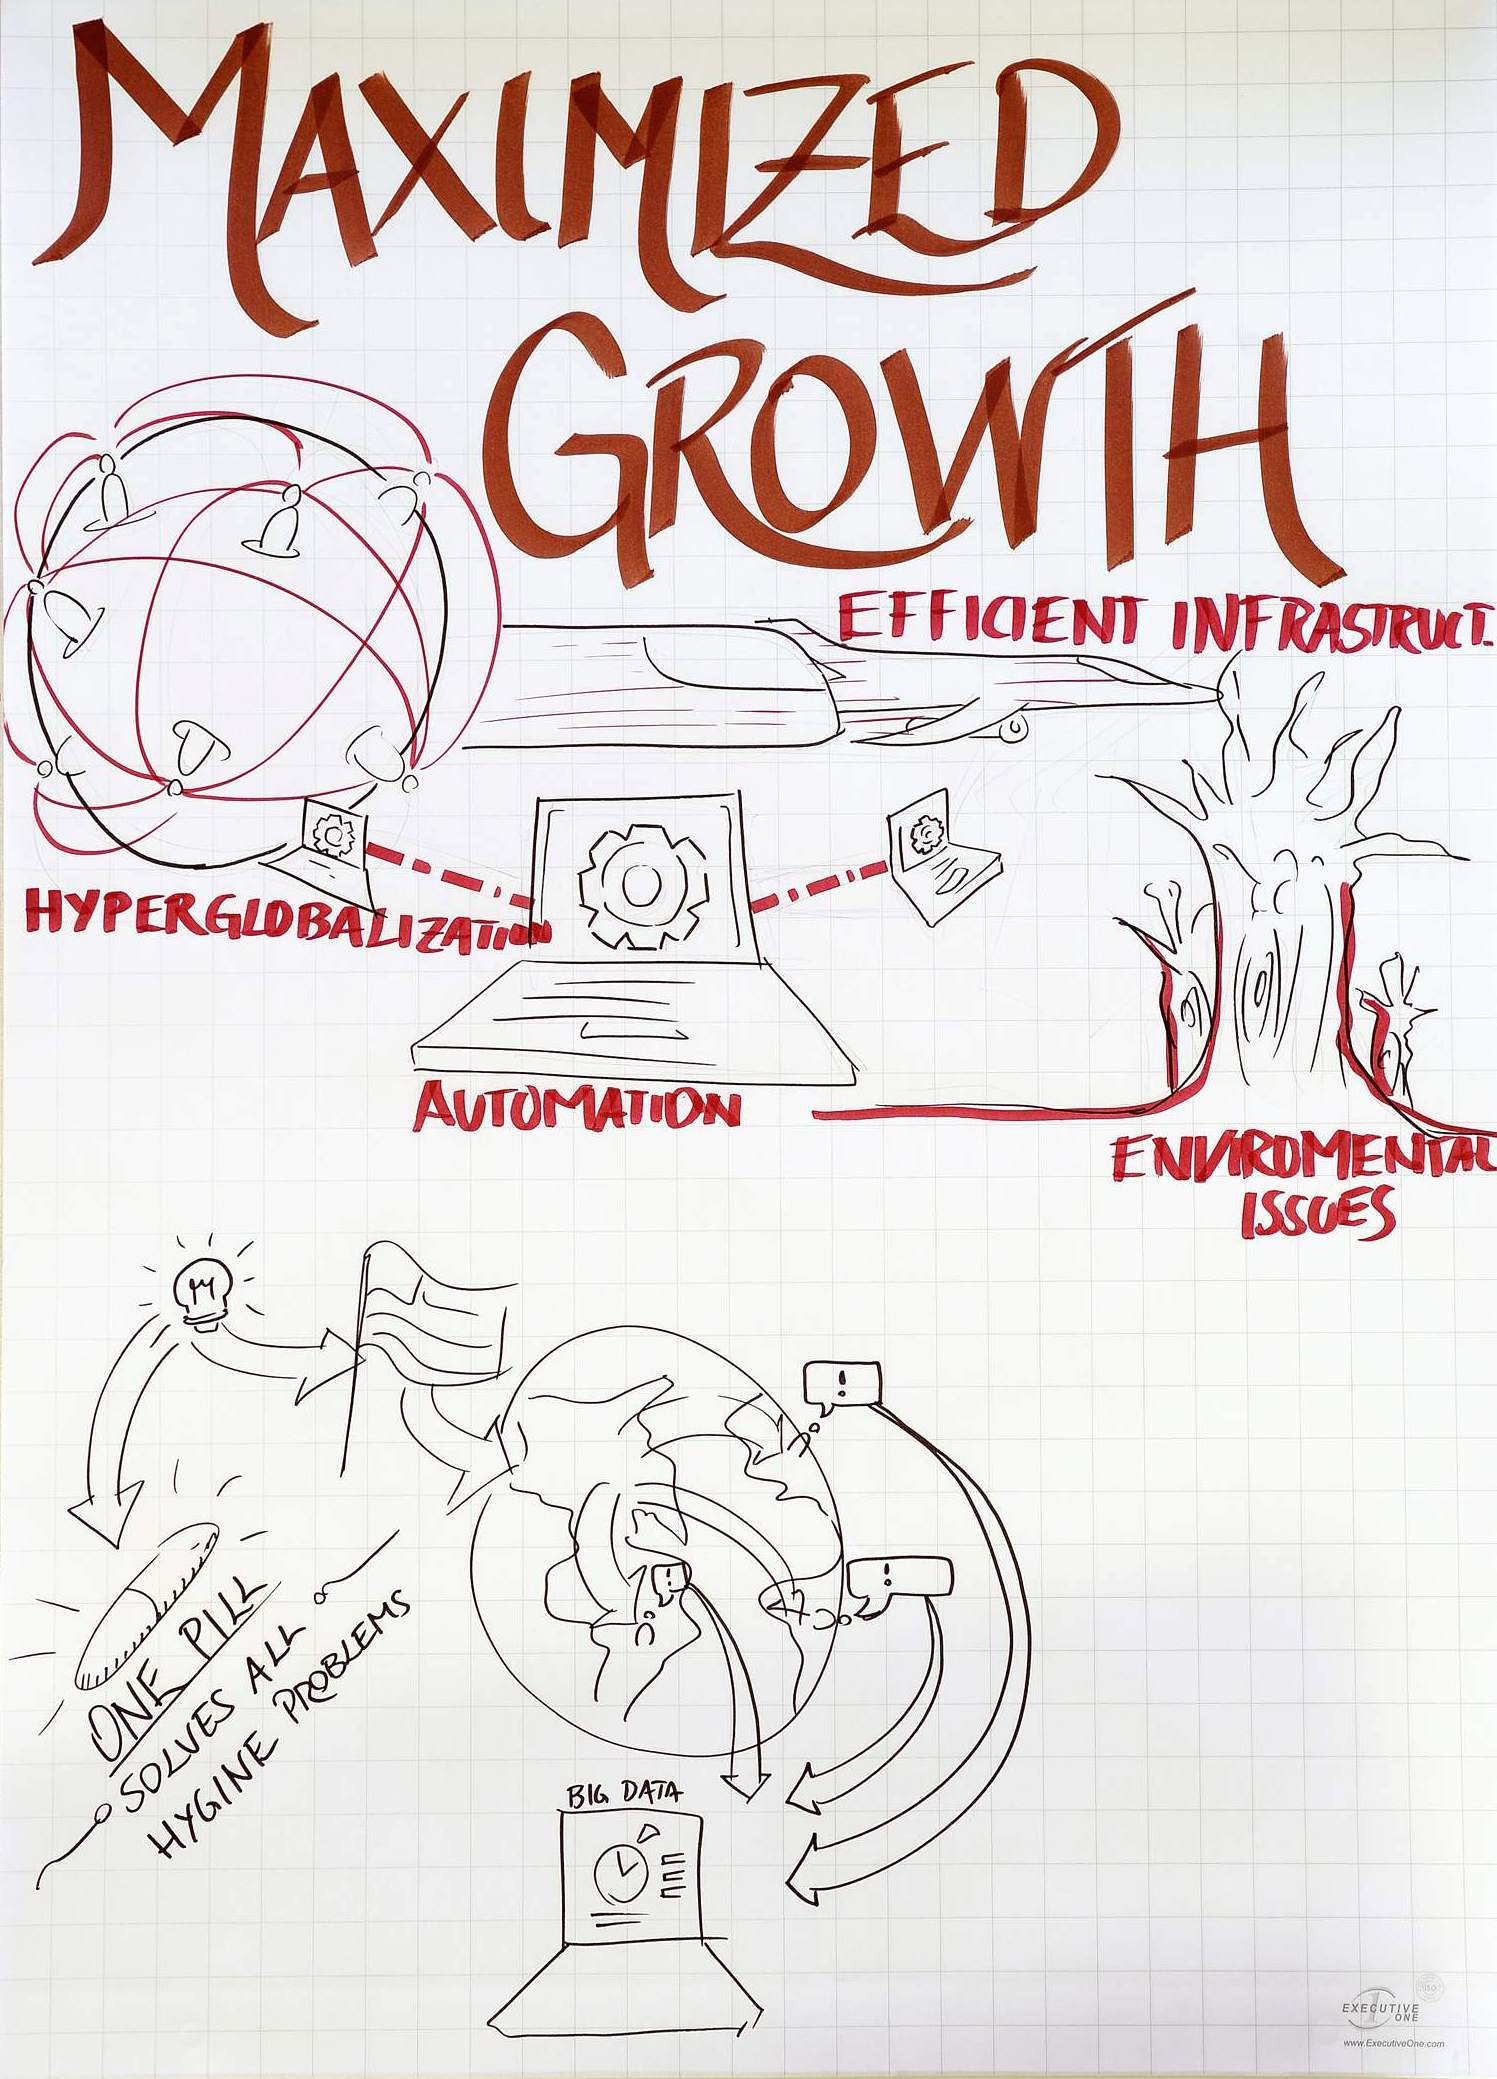 MAXIMIZED
GROWTH
EFFICIENT INFRASTRUCT.
HYPERGLOBALIZATION
AUTOMATION
ENVIROMENTAL
ISSUES
!
!
!
ONE PILL
SOLVES ALL
HYGINE PROBLEMS
BIG DATA
EXECUTIVE
ONE
www.ExecutiveOne.com